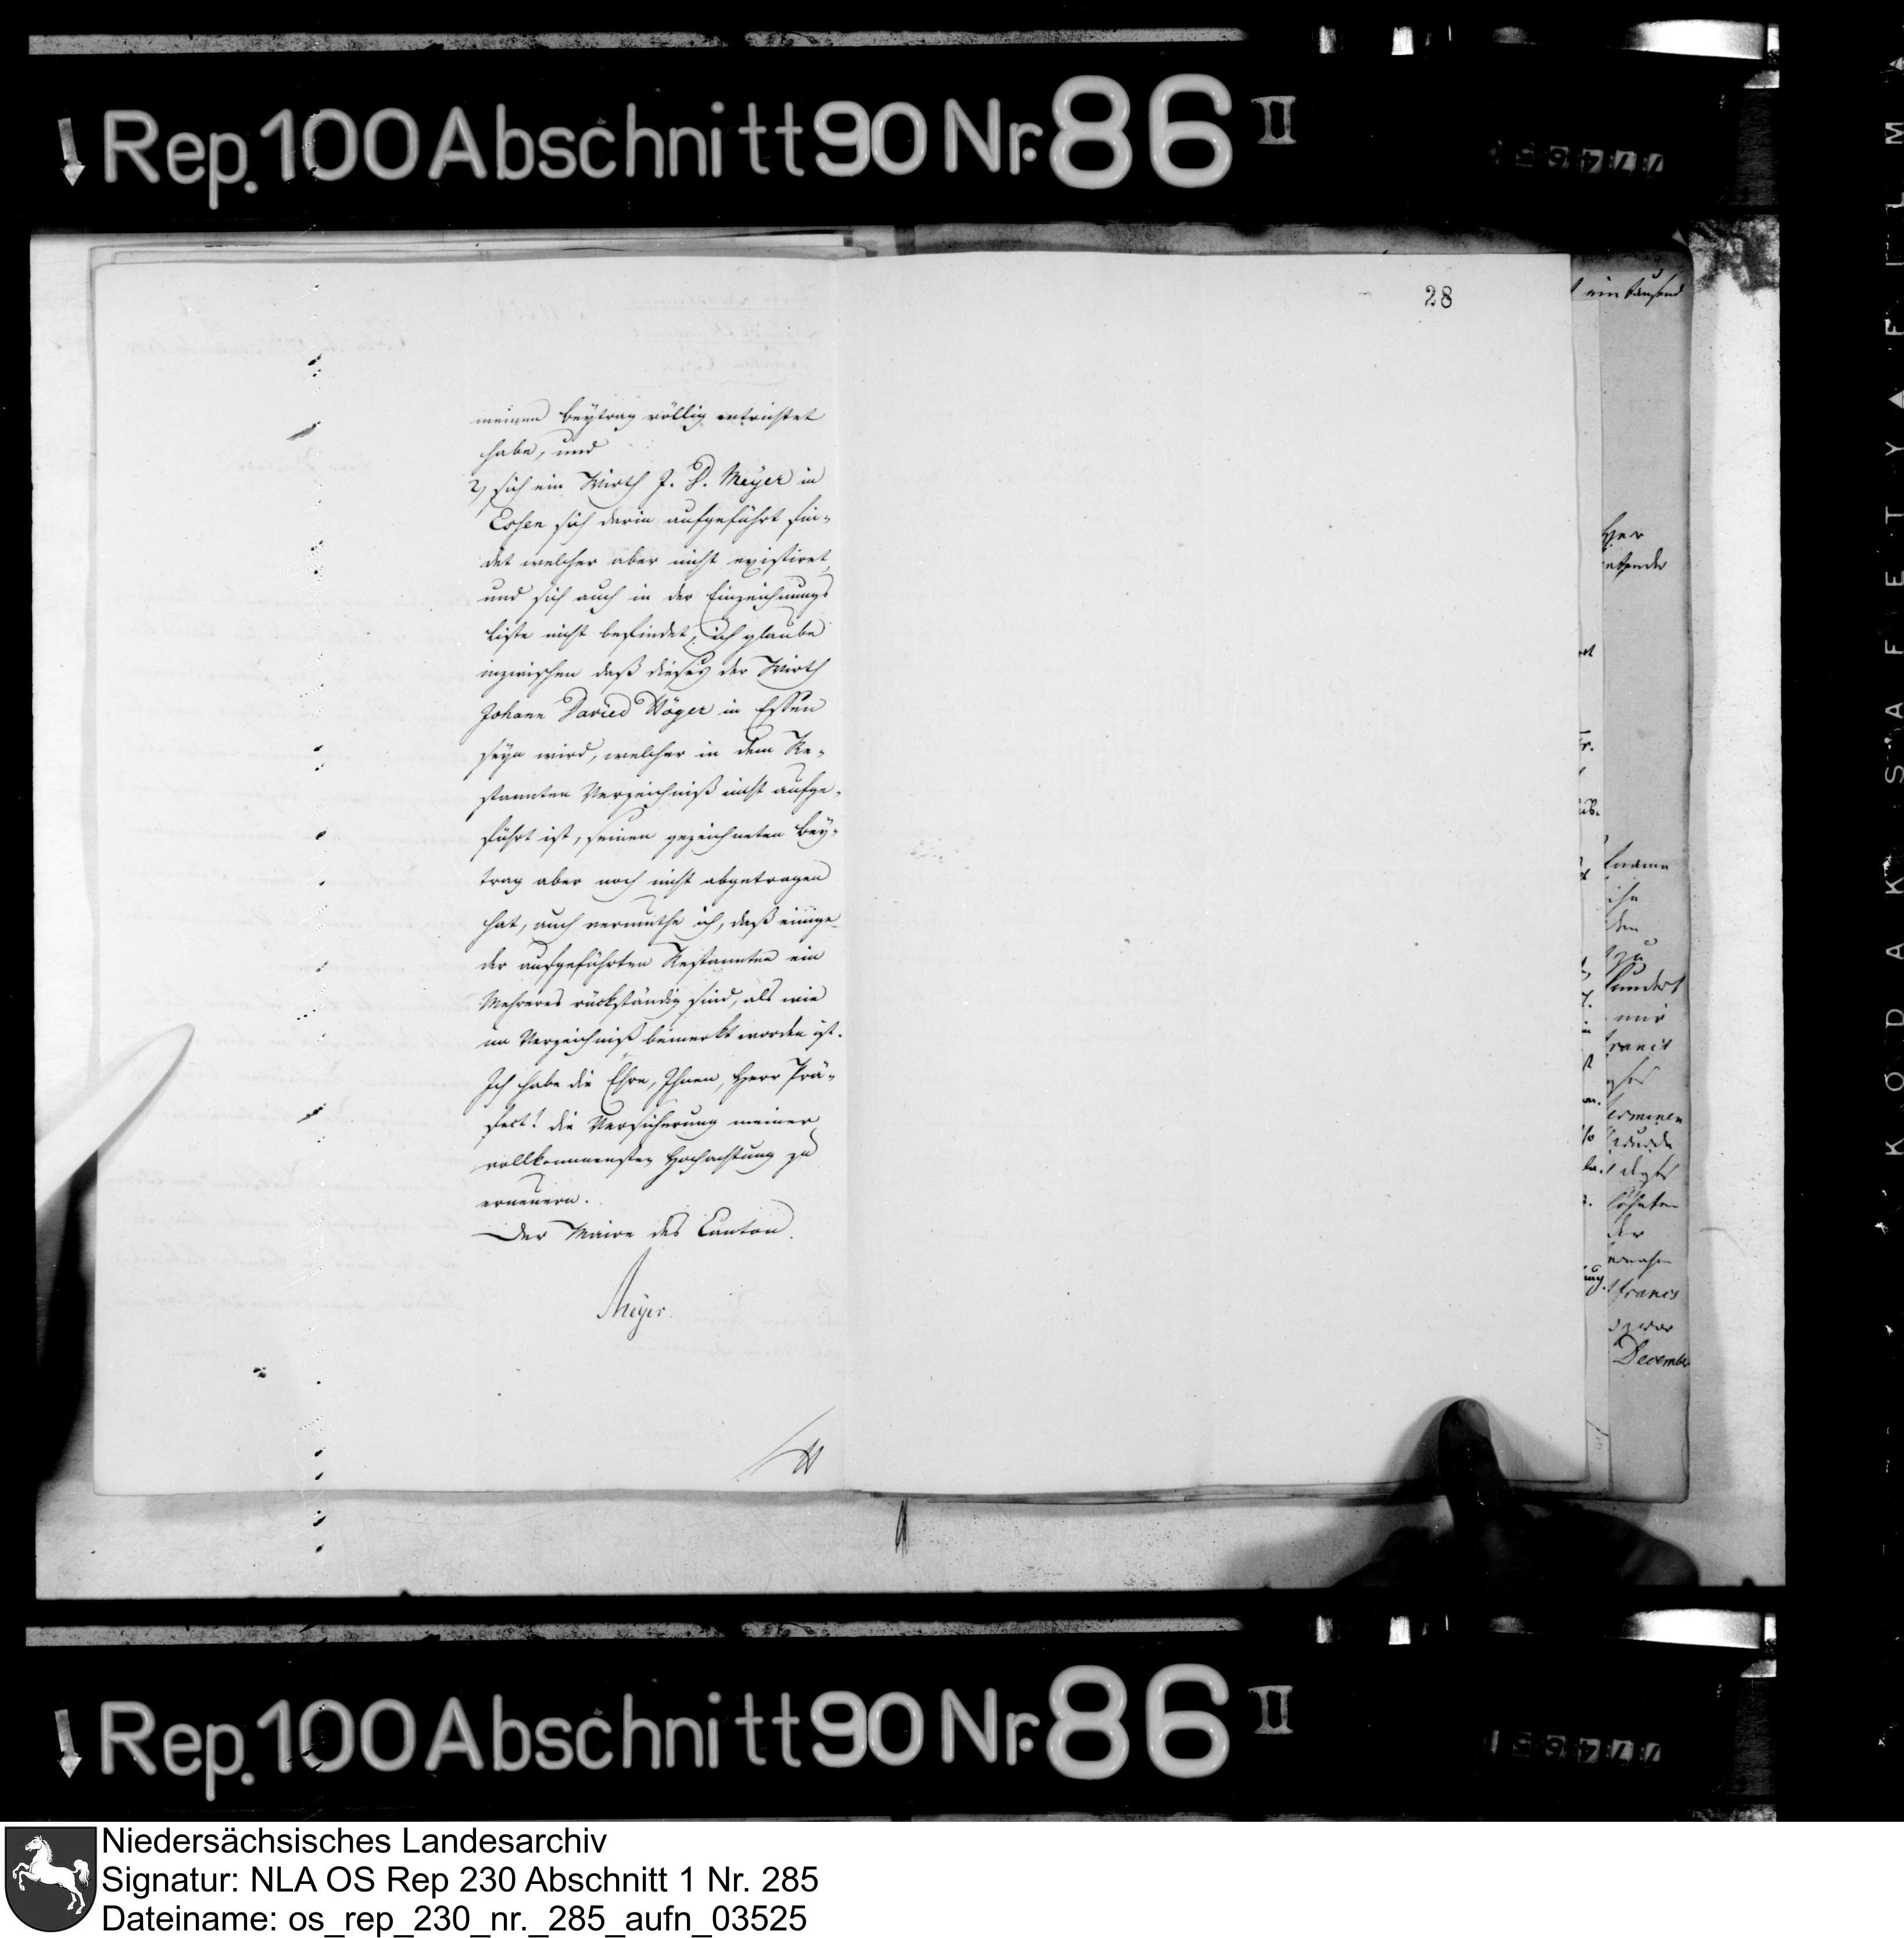 Rep. 100 Abschnitt 90 Nr. 86 II
28
meinen Beytrag völlig entrichtet
habe, und
2) sich ein Wirth J. D. Meyer in
Essen sich darin aufgeführt fin-
det welcher aber nicht existiret,
und sich auch in der Einzeichnungs
Liste nicht befindet, ich glaube
inzwischen daß dieses der Wirth
Johann David Höger in Essen
seyn wird, welcher in dem Re-
stanten Verzeichniß nicht aufge-
führt ist, seinen gezeichneten Bey-
trag aber noch nicht abgetragen
hat, auch vermuthe ich, daß einige
der aufgeführten Restanten ein
Mehreres rückständig sind, als wie
im Verzeichniß bemerkt worden ist.
Ich habe die Ehre, Ihnen, Herr Prä-
fect! die Versicherung meiner
vollkommensten Hochachtung zu
erneuern.
Der Maire des Canton.
Meyer
ein tausend
Herr
mir
francs
der
francs
December
KODAK SAFETY FILM
Rep. 100 Abschnitt 90 Nr. 86 II
Niedersächsisches Landesarchiv
Signatur: NLA OS Rep 230 Abschnitt 1 Nr. 285
Dateiname: os_rep_230_nr._285_aufn_03525